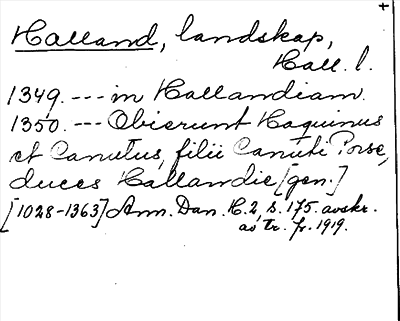 Halland, landskap,
Hall. l.
1349. --- in Hallandiam.
1350. --- Obierunt Haquinus
et Canutus, filii Canuti Porse,
duces Hallandie [gen.]
[1028-1363] Ann. Dan. H. 2, s. 175. avskr.
av tr. fr. 1919.